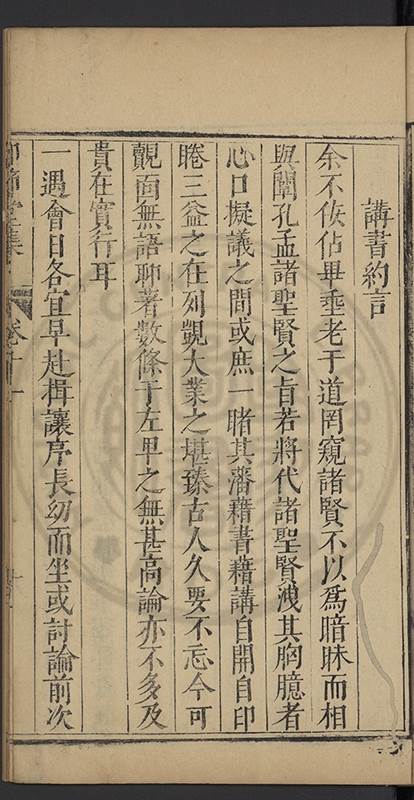 講書約言
余不佞佔畢垂老于道罔窺諸賢不以爲暗昧而相
與闡孔孟諸聖賢之旨若將代諸聖賢洩其胸臆者
心口擬議之間或庶一睹其藩藉書藉講自開自印
睠三益之在列覬大業之堪臻古人久要不忘今可
覿面無語聊著數條于左早之無甚高論亦不多及
貴在實行耳
一遇會日各宜早赴揖讓序長幼而坐或討論前次
節堂集
卷十一